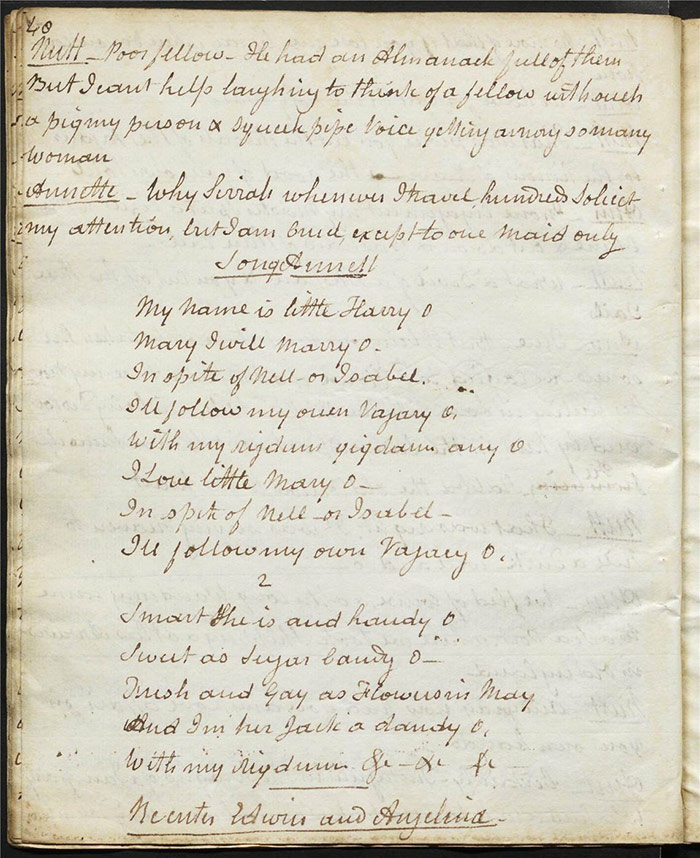 48
Nutt - Poor fellow - He had an Almanack full of them
But I cant help laughing to think of a fellow with such
a pigmy person & squeek pipe Voice getting among so many
woman
Annette - Why Sirrah whenever I travel, hundreds Solicit
my attention, but I am Cruel, except to one Maid only
Song Annett
My name is little Harry O
Mary I will Marry O -
In spite of Nell - or Isabel.
Ill follow my own Vagary O,
With my rigdum gigdum any O
I Love little Mary O -
In spite of Nell - or Isabel -
Ill follow my own Vagary O,
2
Smart She is and handy O
Sweet as Sugar Candy O -
Fresh and Gay as Flowers in May
And Im her Jack a dandy O,
With my Rigdum &c - &c &c
Reenter Edwin and Angelina -